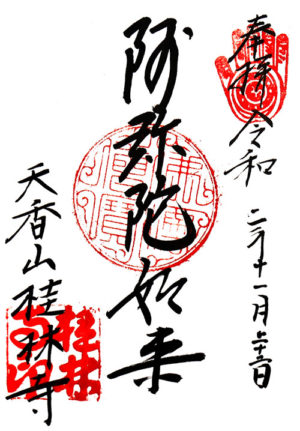 奉拝 令和二年十一月二十二日
阿弥陀如来
天香山桂林寺